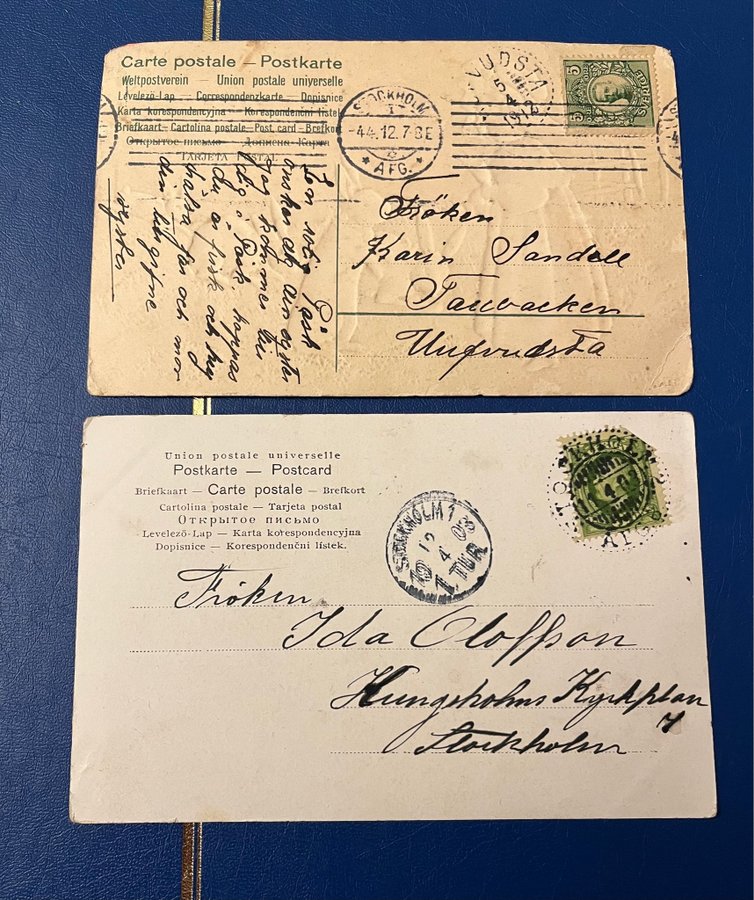 Carte postale — Postkarte
Weltpostverein — Union postale universelle
Levelező-Lap — Correspondenzkarte — Dopisnice
Karta korespondencyjna — Korespondenční lístek
Briefkaart — Cartolina postale — Post card — Brefkort
Открытое письмо — Дописна Карта
TARJETA POSTAL
STOCKHOLM
1
4.4.12.7-8E
AFG.
VUDSTA
5
4
1912
5
5
SVERIGE
En rolig Påsk
önskar dig din syster
Jag kommer
Påsk, hoppas
du är frisk och kry
hälsa far och mor
din tillgifne
syster
Fröken
Karin Sandell
Ungvudsta
Union postale universelle
Postkarte — Postcard
Briefkaart — Carte postale — Brefkort
Cartolina postale — Tarjeta postal
Открытое письмо
Levelező-Lap — Karta korespondencyjna
Dopisnice — Korespondenční lístek.
STOCKHOLM 1
19 12 4 03
1 TUR
STOCKHOLM
AFG
Fröken
Ida Oloffson
Kungsholms Kyrkplan
Stockholm